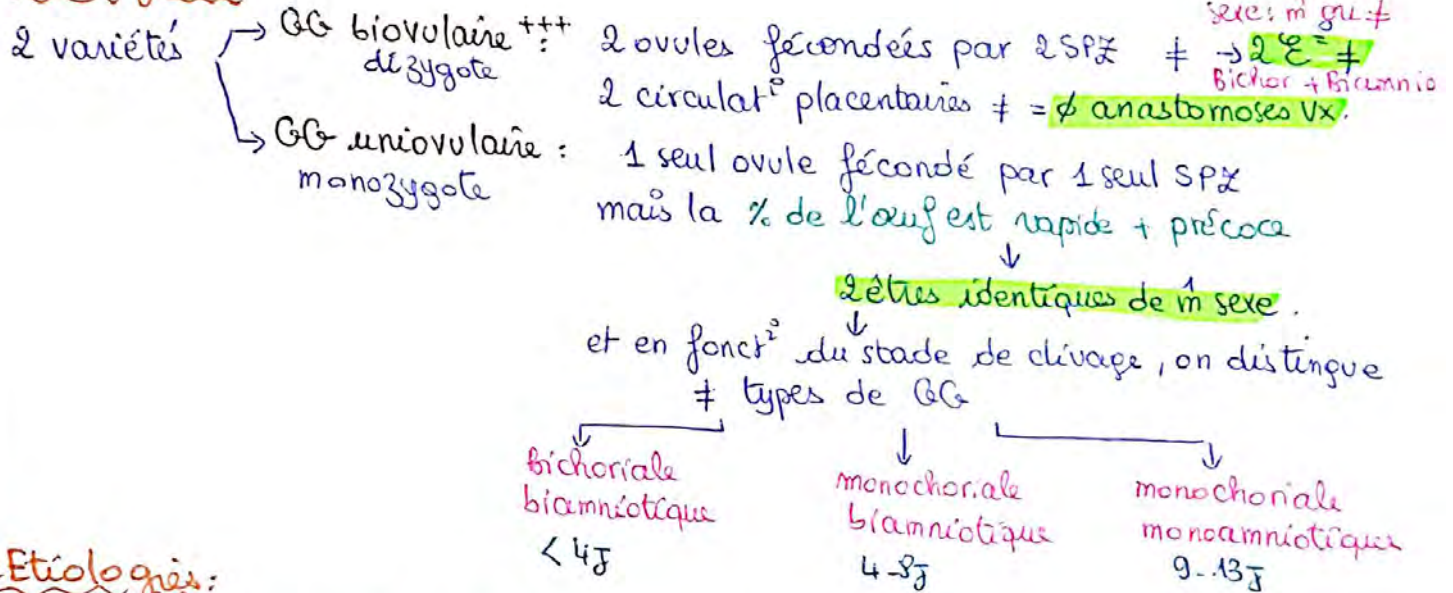 sexe: m̂ ou ≠
2 variétés → GG biovulaire +++ : 2 ovules fécondées par 2 SPZ ≠ → 2 Œ =  ≠
dizygote
Bichor + Biamnio
2 circulat° placentaires ≠ = ∅ anastomoses Vx.
→ GG uniovulaire : 1 seul ovule fécondé par 1 seul SPZ
monozygote
mais la % de l'œuf est rapide + précoce
↓
2 êtres identiques de m̂ sexe.
↓
et en fonct° du stade de clivage, on distingue
≠ types de GG
bichoriale monochoriale monochoriale
biamniotique biamniotique monoamniotique
< 4J 4-8J 9-.13J
Etiologies: